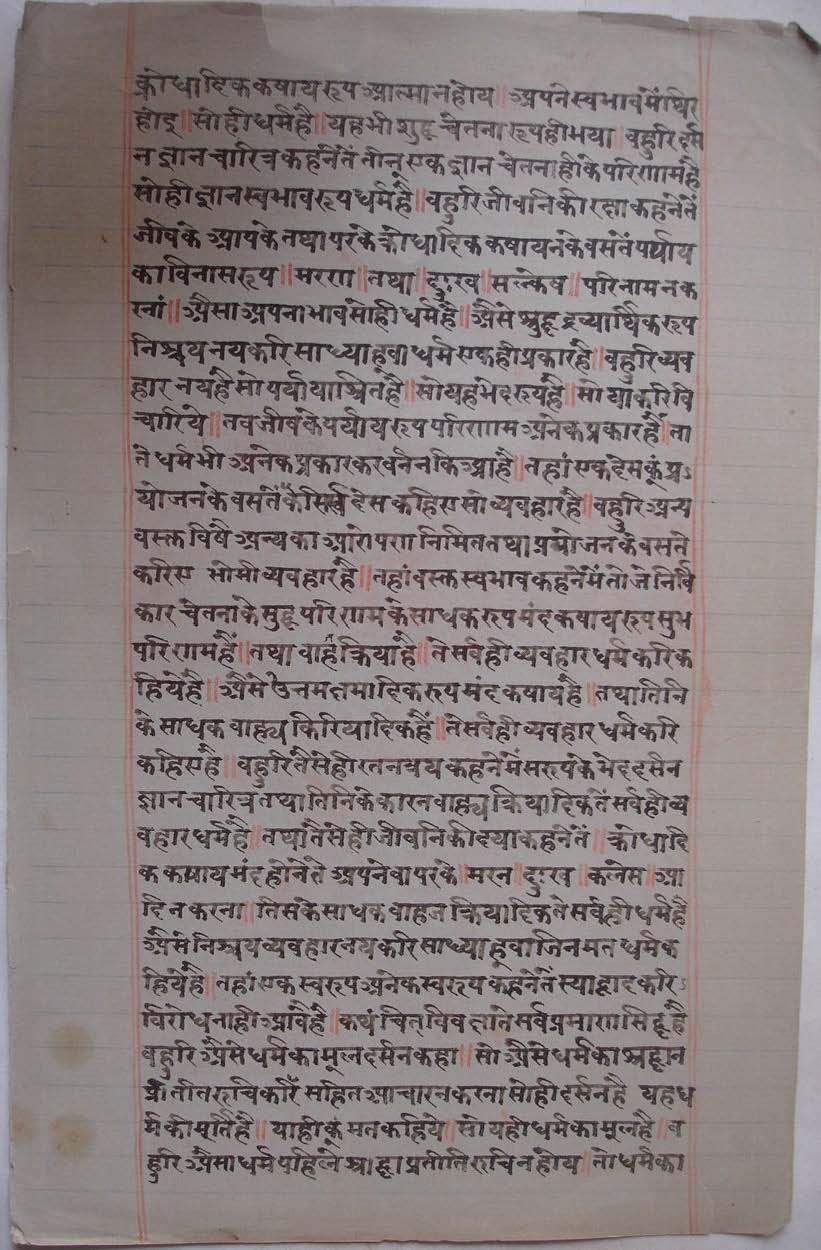 क्रोधादिककषायरूप आत्मा न होय ॥ अपने स्वभावमें थिर
होइ ॥ सो ही धर्म है ॥ यह भी शुद्ध चेतना रूप ही भया ॥ बहुरि दर्स
न ज्ञान चारित्र कहनेतें तीनू एक ज्ञान चेतना ही के परिणाम है
सो ही ज्ञानस्वभावरूप धर्म है ॥ बहुरि जीवनिकी रक्षा कहनेतें
जीवके आपके तथा परके क्रोधादिक कषायनके वसतें पर्याय
का विनासरूप ॥ मरण ॥ तथा ॥ दुःख ॥ सल्केष ॥ परिनाम न क
रनां ॥ अैसा अपना भाव सो ही धर्म है ॥ अैसे श्रुद्ध द्रव्यार्थिकरूप
निश्चय नय करि साध्या हूवा धर्म एक ही प्रकार है ॥ बहुरि व्यव
हार नय है सो पर्यायाश्रित है ॥ सो यह भेदरूप है ॥ सो याकरि वि
चारिये ॥ तव जीवके पर्यायरूप परिणाम अनेक प्रकार है ॥ ता
ते धर्म भी अनेक प्रकार करि वर्नन किआ है ॥ तहां एकदेसकूं प्र
योजनके वसतें सर्वदेस कहिए सो व्यवहार है ॥ बहुरि अन्य
वस्त विषै अन्यका आरोपण निमित तथा प्रयोजनके वसते
करिए सो भी व्यवहार है ॥ तहां वस्त स्वभाव कहनेमें तो जे निर्वि
कार चेतनाके सुद्ध परिणामके साधकरूप मंद कषायरूप सुभ
परिणाम है ॥ तथा वाह्य क्रिया है ॥ ते सर्व ही व्यवहार धर्म करि क
हिये है ॥ अैसे उत्तमक्षमादिकरूप मंद कषाय है ॥ तथा तिनि
के साधक वाह्य किरियादिक है ॥ ते सर्व ही व्यवहार धर्म करि
कहिए है ॥ बहुरि तैसे ही रतनत्रय कहनेमें सरूपके भेद दर्सन
ज्ञान चारित्र तथा तिनिके कारन वाह्य क्रियादिक ते सर्व ही व्य
वहार धर्म है ॥ तथा तैसे ही जीवनिकी दया कहनेतें ॥ क्रोधादि
क कषाय मंद होनेतें अपने वा परके ॥ मरन ॥ दुःख ॥ कलेस ॥ आ
दि न करना ॥ तिसके साधक वाहज क्रियादिक ते सर्व ही धर्म है
अैसे निश्चय व्यवहार नय करि साध्या हूवा जिनमत धर्म क
हिये है ॥ तहां एक स्वरूप अनेक स्वरूप कहनेतें स्याद्वाद करि
विरोध नाही आवै है ॥ कथंचित् विवक्षाते सर्व प्रमाण सिद्ध है
बहुरि अैसे धर्मका मूल दर्सन कहा ॥ सो अैसे धर्मका श्रद्धान
प्रतीत रुचि करि सहित आचारन करना सो ही दर्सन है यह ध
र्मकी मूर्ति है ॥ याहीकूं मत कहिये ॥ सो यही धर्मका मूल है ॥ ब
हुरि अैसा धर्म पहिले श्रद्धा प्रतीति रुचि न होय ॥ तो धर्मका